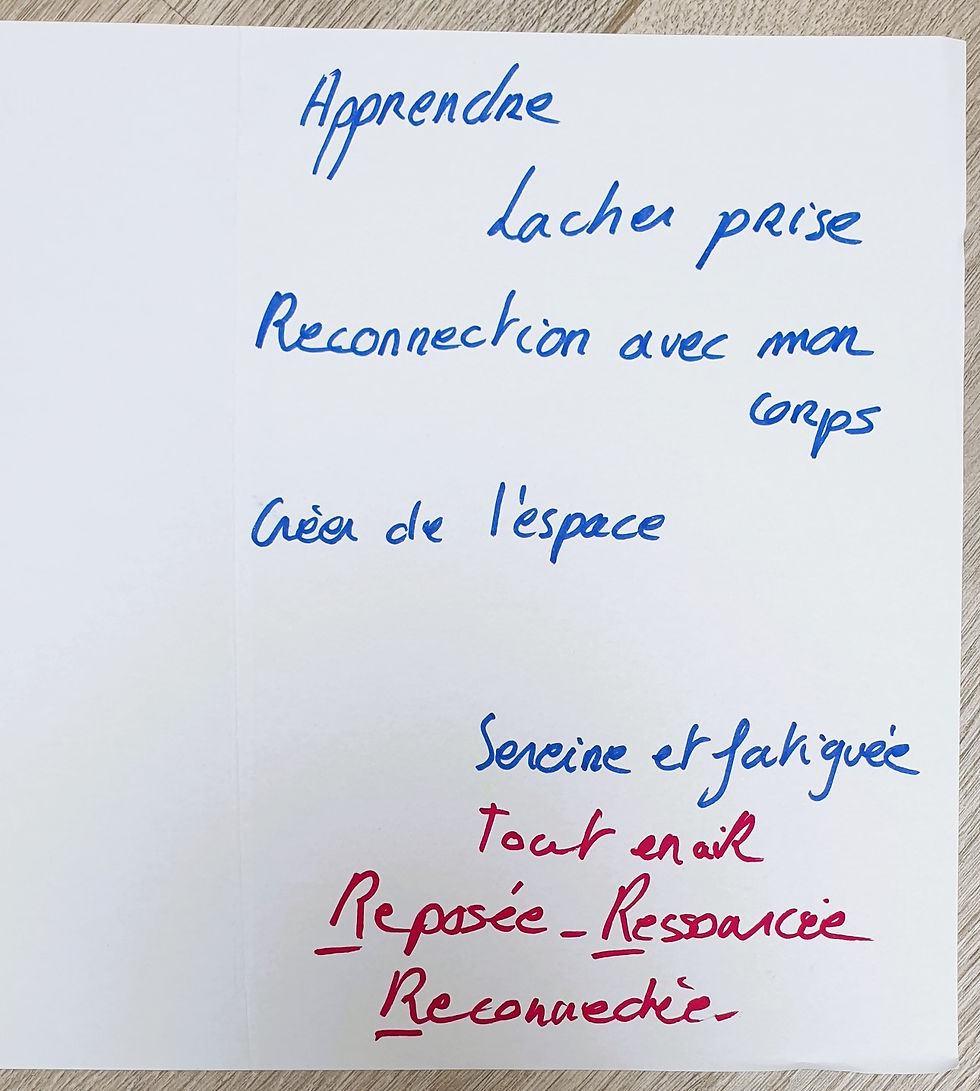 Apprendre
Lacher prise
Reconnection avec mon
corps
Créer de l'espace
Sereine et fatiguée
Tout en aiR
Reposée - Ressourcée
Reconnectée -